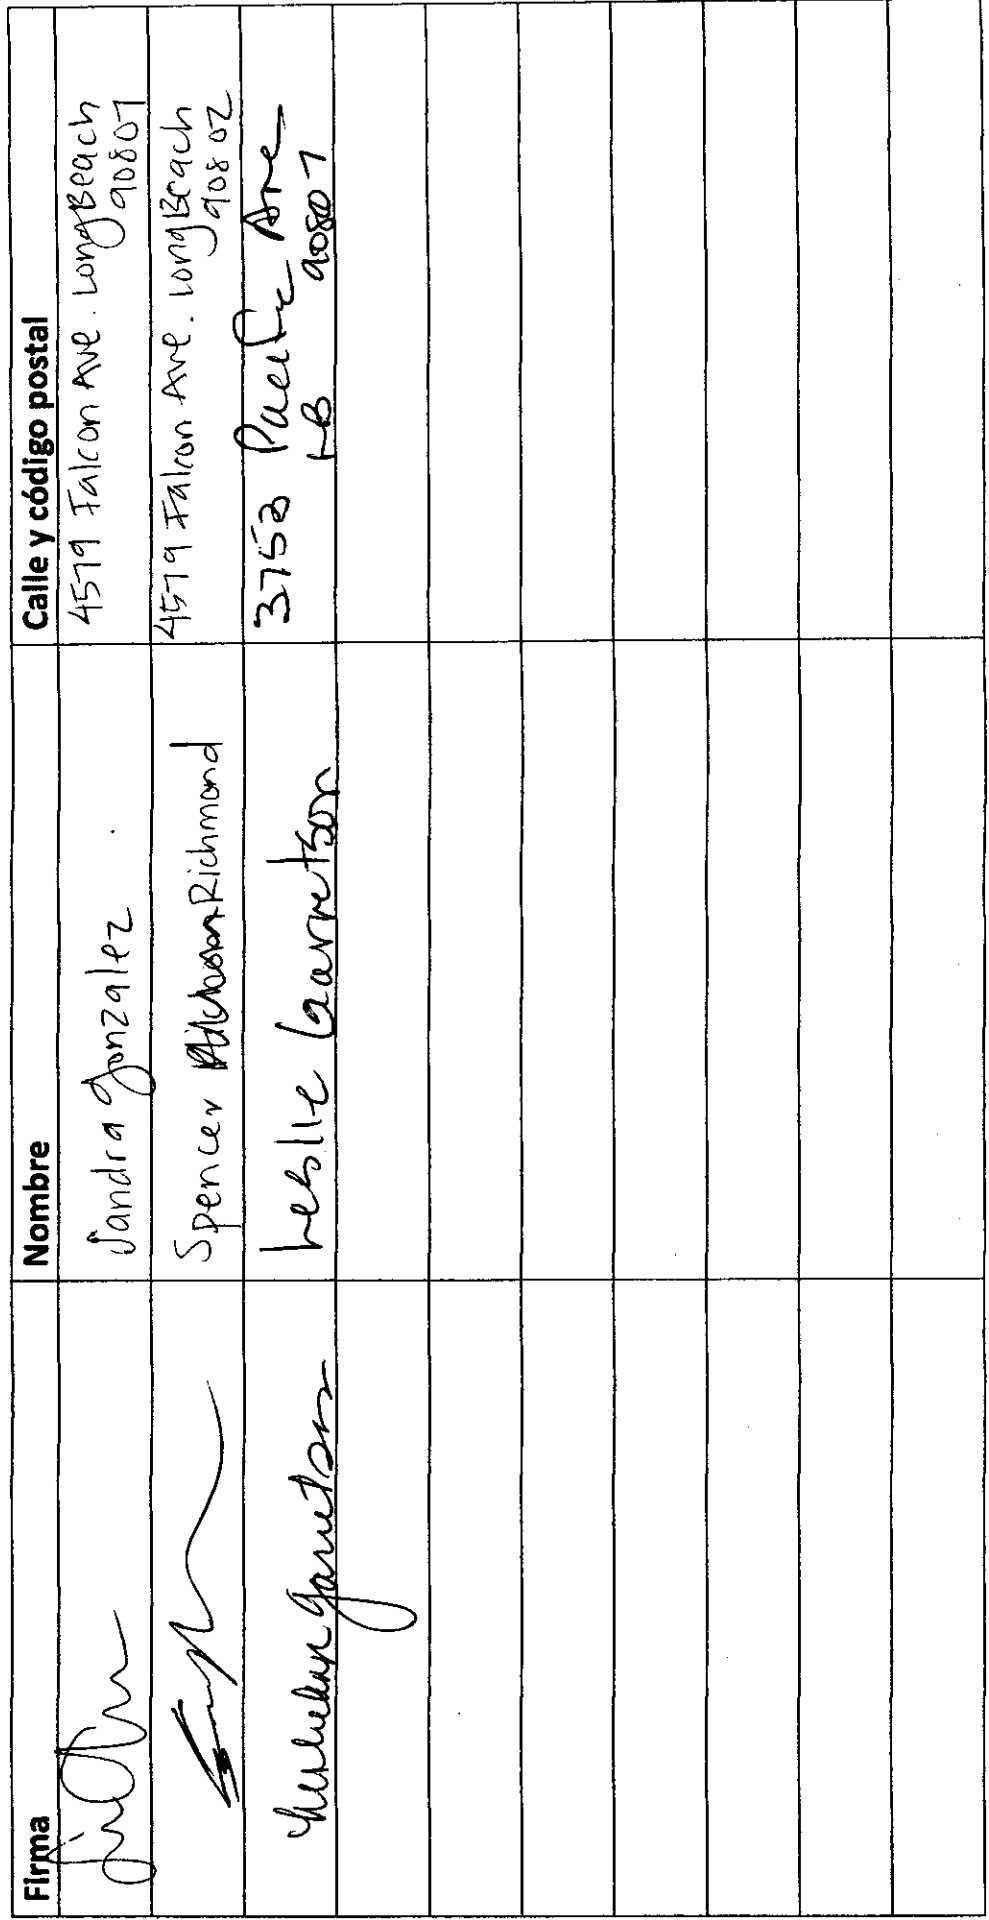 Firma Nombre Calle y código postal
Sandra Gonzalez 4579 Falcon Ave. Long Beach
90807
Spencer Richmond 4579 Falcon Ave. Long Beach
90802
Leslie Garretson Pacific Ave
LB 90807